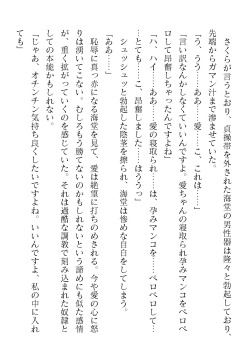 さくらが言うとおり、貞操帯を外された海堂の男性器は隆々と勃起しており、
先端からガマン汁まで滴っている。
「う、ううっ……ああ……愛……こ、これは……」
「言い訳なんかしなくていいんですよ。愛ちゃんの寝取られ孕みマンコをペロペ
ロして昂奮しちゃったんですよね」
「ハ、ハイ……ああ……愛の寝取られ……は、孕みマンコを……ペロペロして…
…とても……こ、昂奮しました……はううっ」
シュッシュッと勃起した陰茎を擦られ、海堂は惨めな自白をしてしまう。
「ああ……」
恥辱に真っ赤になる海堂を見て、愛は絶望に打ちのめされる。今や愛の心に怒
りは湧いてこない。むしろもう勝てないのかもしれないという諦めにも似た感情
が、重く拡がっていくのを感じていた。それは過酷な調教で刻み込まれた奴隷と
しての本能かもしれない。
「じゃあ、オチンチン気持ち良くしたいですよね。いいんですよ、私の中に入れ
ても」